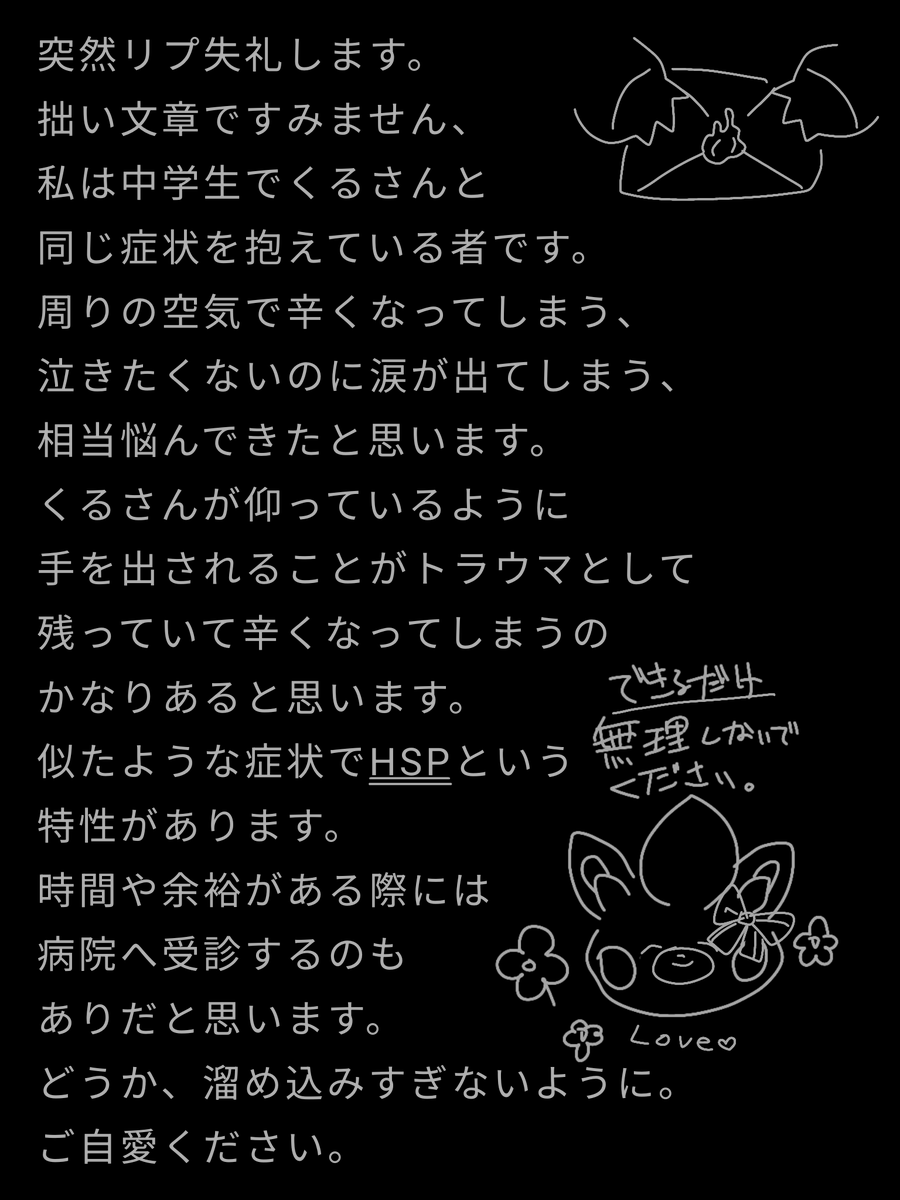 突然リプ失礼します。
拙い文章ですみません、
私は中学生でくるさんと
同じ症状を抱えている者です。
周りの空気で辛くなってしまう、
泣きたくないのに涙が出てしまう、
相当悩んできたと思います。
くるさんが仰っているように
手を出されることがトラウマとして
残っていて辛くなってしまうの
かなりあると思います。
似たような症状でHSPという
特性があります。
時間や余裕がある際には
病院へ受診するのも
ありだと思います。
どうか、溜め込みすぎないように。
ご自愛ください。
できるだけ
無理しないで
ください。
Love♡